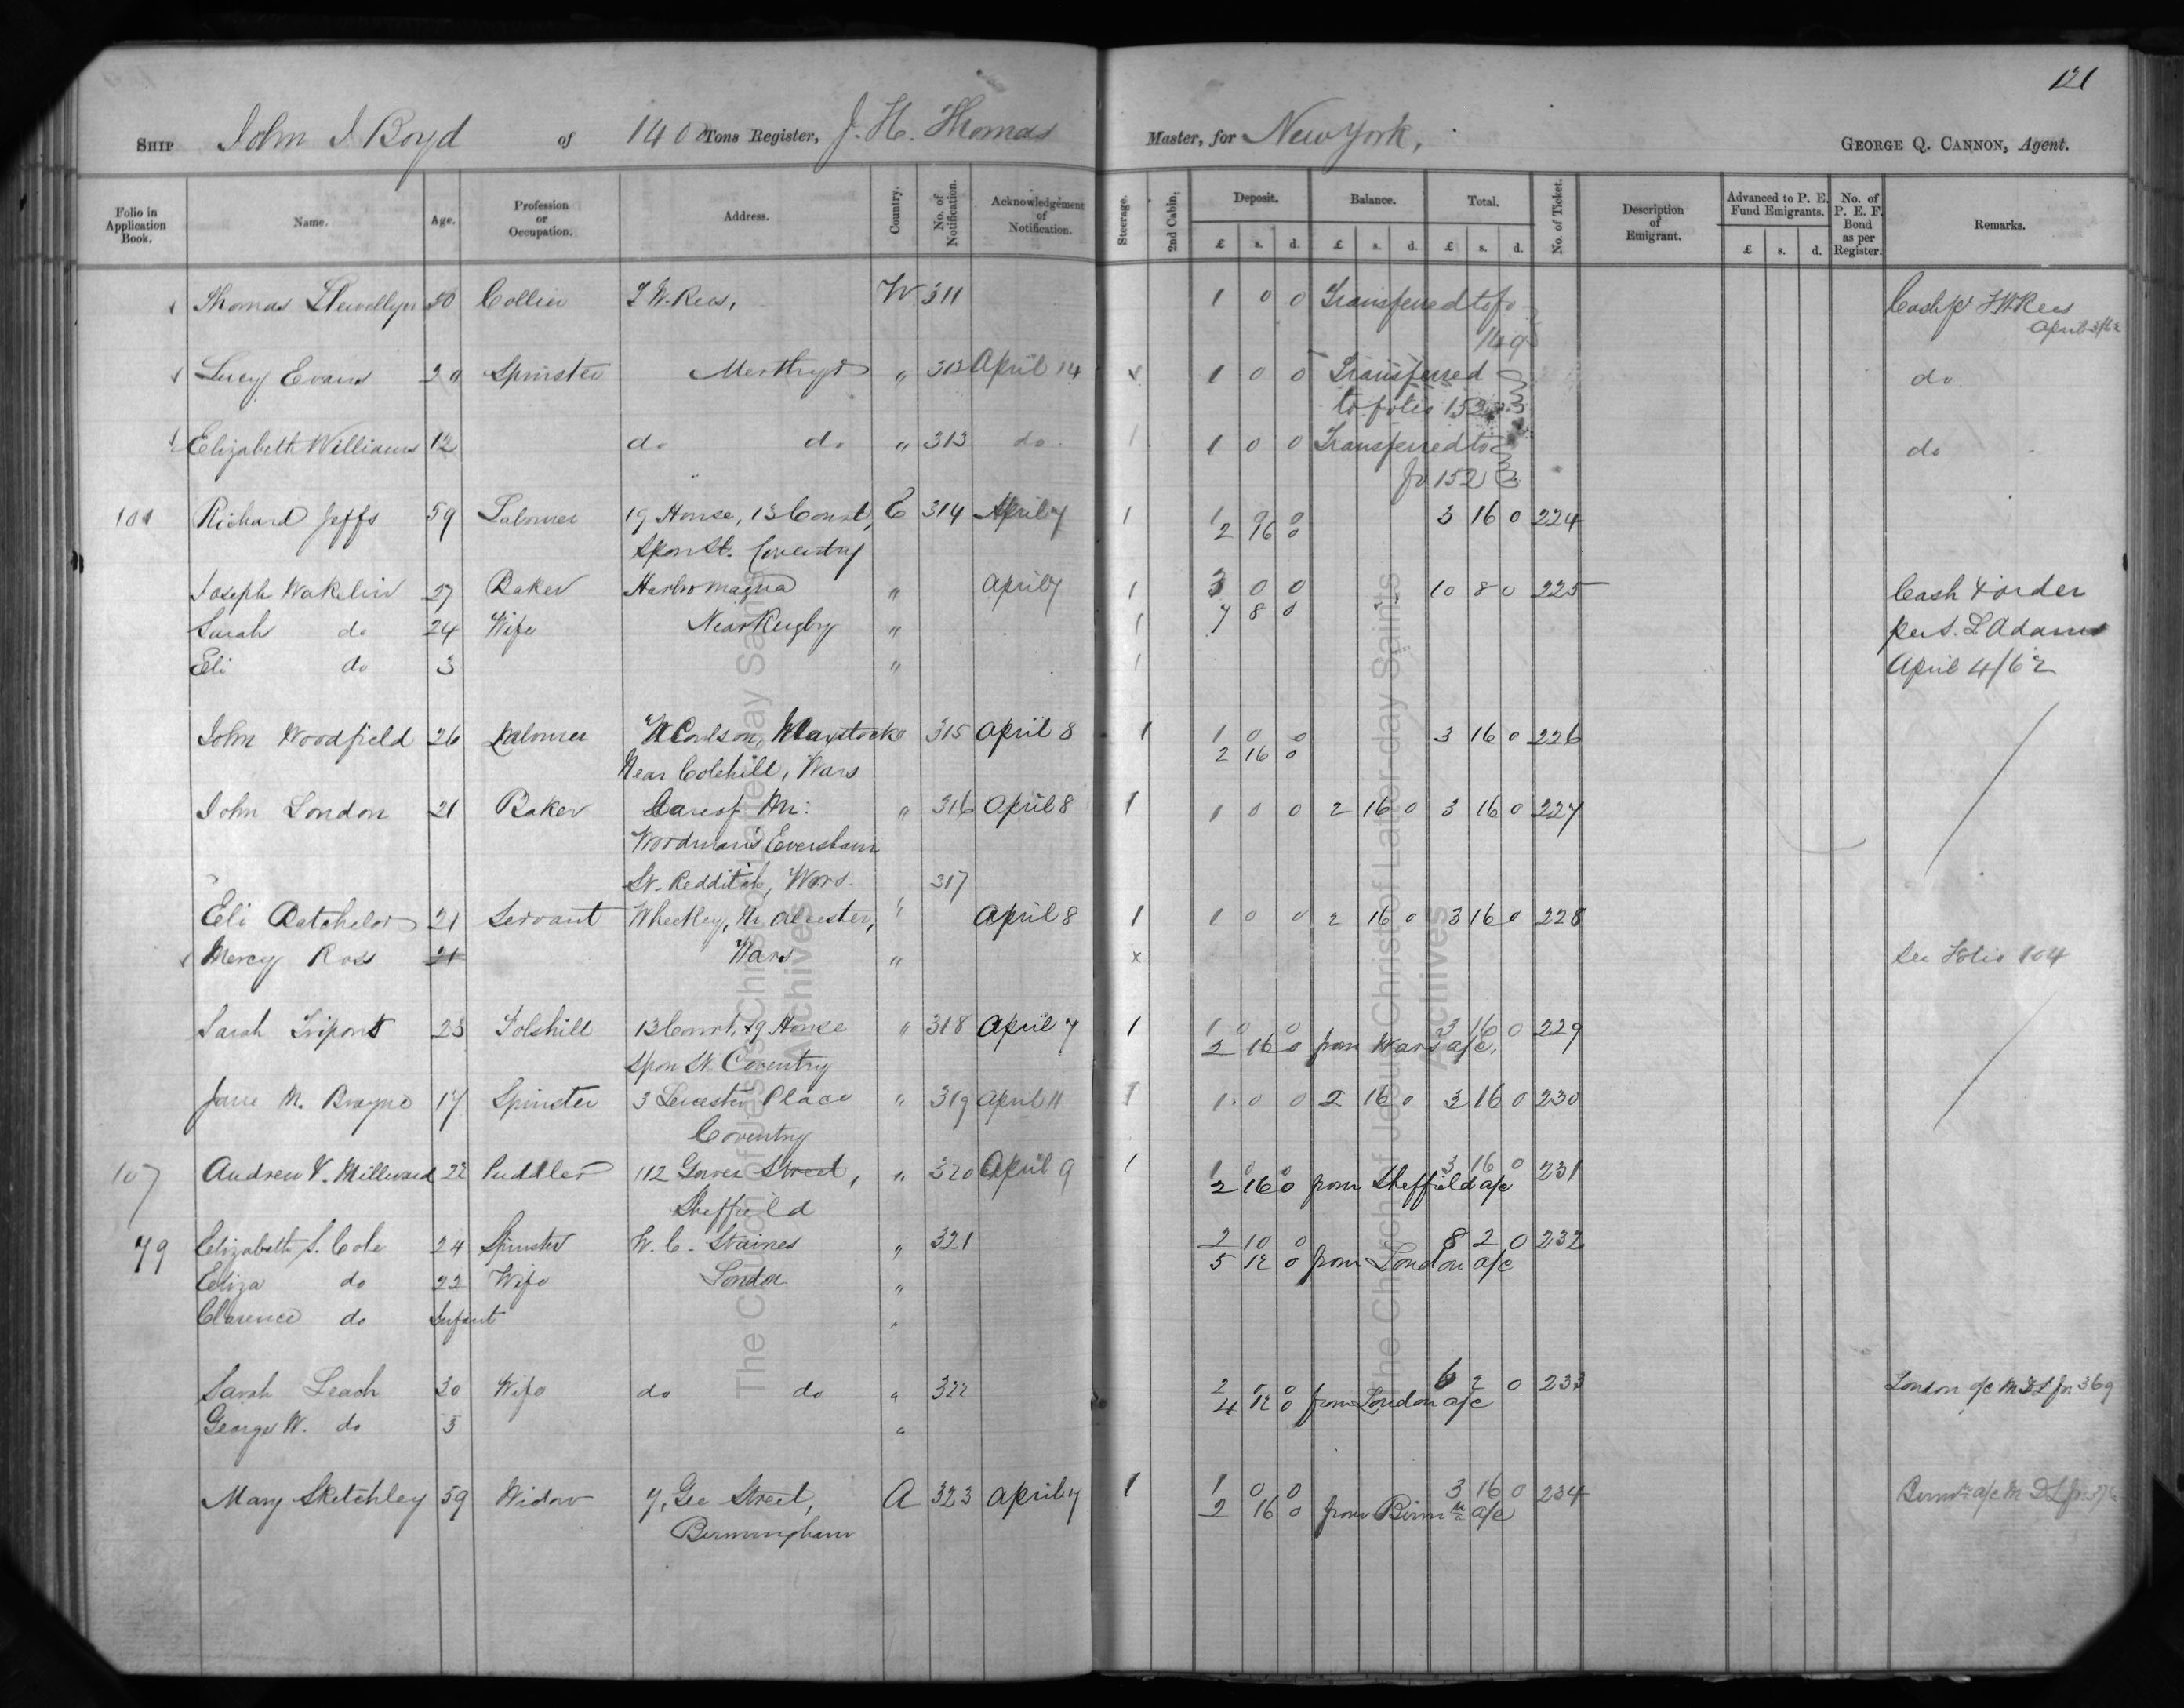 121
SHIP John J Boyd of 140 Tons Register, J. H. Thomas Master, for New York, GEORGE Q. CANNON, Agent.
Folio in Application Book. Name. Age. Profession or Occupation. Address. Country. No. of Notification. Acknowledgement of Notification. Steerage. 2nd Cabin. Deposit. £ s. d. Balance. £ s. d. Total. £ s. d. No. of Ticket. Description of Emigrant. Advanced to P. E. Fund Emigrants. £ s. d. No. of P. E. F. Bond as per Register. Remarks.
Thomas Llewellyn 50 Collier T W. Rees, W 311 1 0 0 Transferred to fo Cash pr T W Rees
149 April 3/62
Lucy Evans 20 Spinster Merthyr " 312 April 14 x 1 0 0 Transferred do
to folio 152
Elizabeth Williams 12 do do " 313 do 1 1 0 0 Transferred to do
fo 152
101 Richard Jeffs 59 Labourer 19 House, 13 Court, E 314 April 7 1 1 0 0 3 16 0 224
Spon St. Coventry 2 16 0
Joseph Wakelin 27 Baker Harbro Magna " April 7 1 3 0 0 10 8 0 225 Cash & order
Sarah do 24 Wife Near Rugby " 1 7 8 0 per S. L Adams
Eli do 3 " 1 April 4/62
John Woodfield 26 Labourer W Coulson, Maxstoke 315 April 8 1 1 0 0 3 16 0 226
Near Colehill, Wars 2 16 0
John London 21 Baker Care of Mr: " 316 April 8 1 1 0 0 2 16 0 3 16 0 227
Woodman's Eversham
St. Redditch, Wors. 317
Eli Batchelor 21 Servant Wheetley, Nr Alcester, " April 8 1 1 0 0 2 16 0 3 16 0 228
Mercy Ross 21 Wars " x See Folio 104
Sarah Tripont 23 Foleshill 13 Court, 19 House " 318 April 7 1 1 0 0 3 16 0 229
Spon St. Coventry 2 16 0 from Wars a/c.
Jane M. Brayne 17 Spinster 3 Leicester Place " 319 April 11 1 1 0 0 2 16 0 3 16 0 230
Coventry
107 Andrew V. Millward 22 Puddler 112 Gower Street, " 320 April 9 1 1 0 0 3 16 0 231
Sheffield 2 16 0 from Sheffield a/c
79 Elizabeth S. Cole 24 Spinster W. C. Staines " 321 2 10 0 8 2 0 232
Eliza do 22 Wife London " 5 12 0 from London a/c
Clarence do Infant "
Sarah Leach 30 Wife do do " 322 2 0 6 2 0 233 London a/c M D L fo. 369
George W. do 3 " 4 12 0 from London a/c
Mary Sketchley 59 Widow 7, Gee Street, A 323 April 7 1 1 0 0 3 16 0 234 Birmm a/c M D L fo.
Birmingham 2 16 0 from Birmm a/c
The Church of Jesus Christ of Latter-day Saints
Archives
The Church of Jesus Christ of Latter-day Saints
Archives